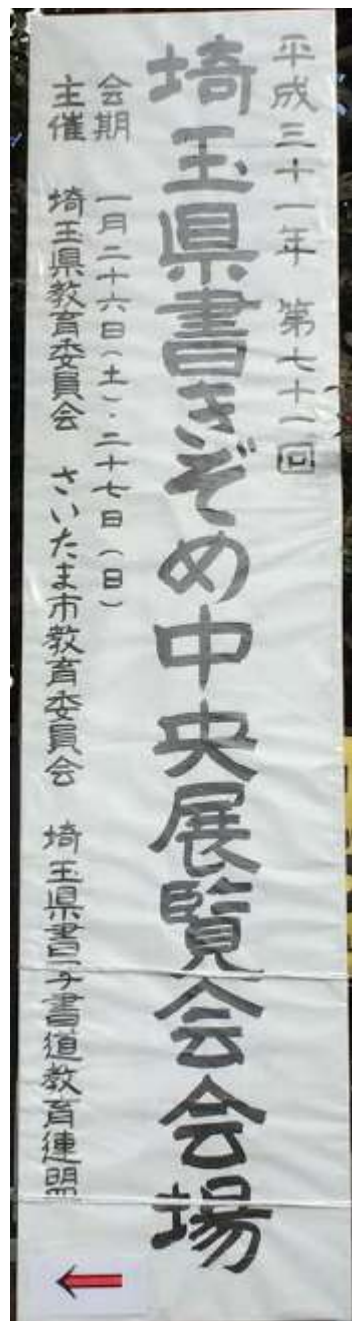 平成三十一年 第七十一回
埼玉県書きぞめ中央展覧会会場
会期 一月二十六日(土)・二十七日(日)
主催 埼玉県教育委員会 さいたま市教育委員会 埼玉県書写書道教育連盟